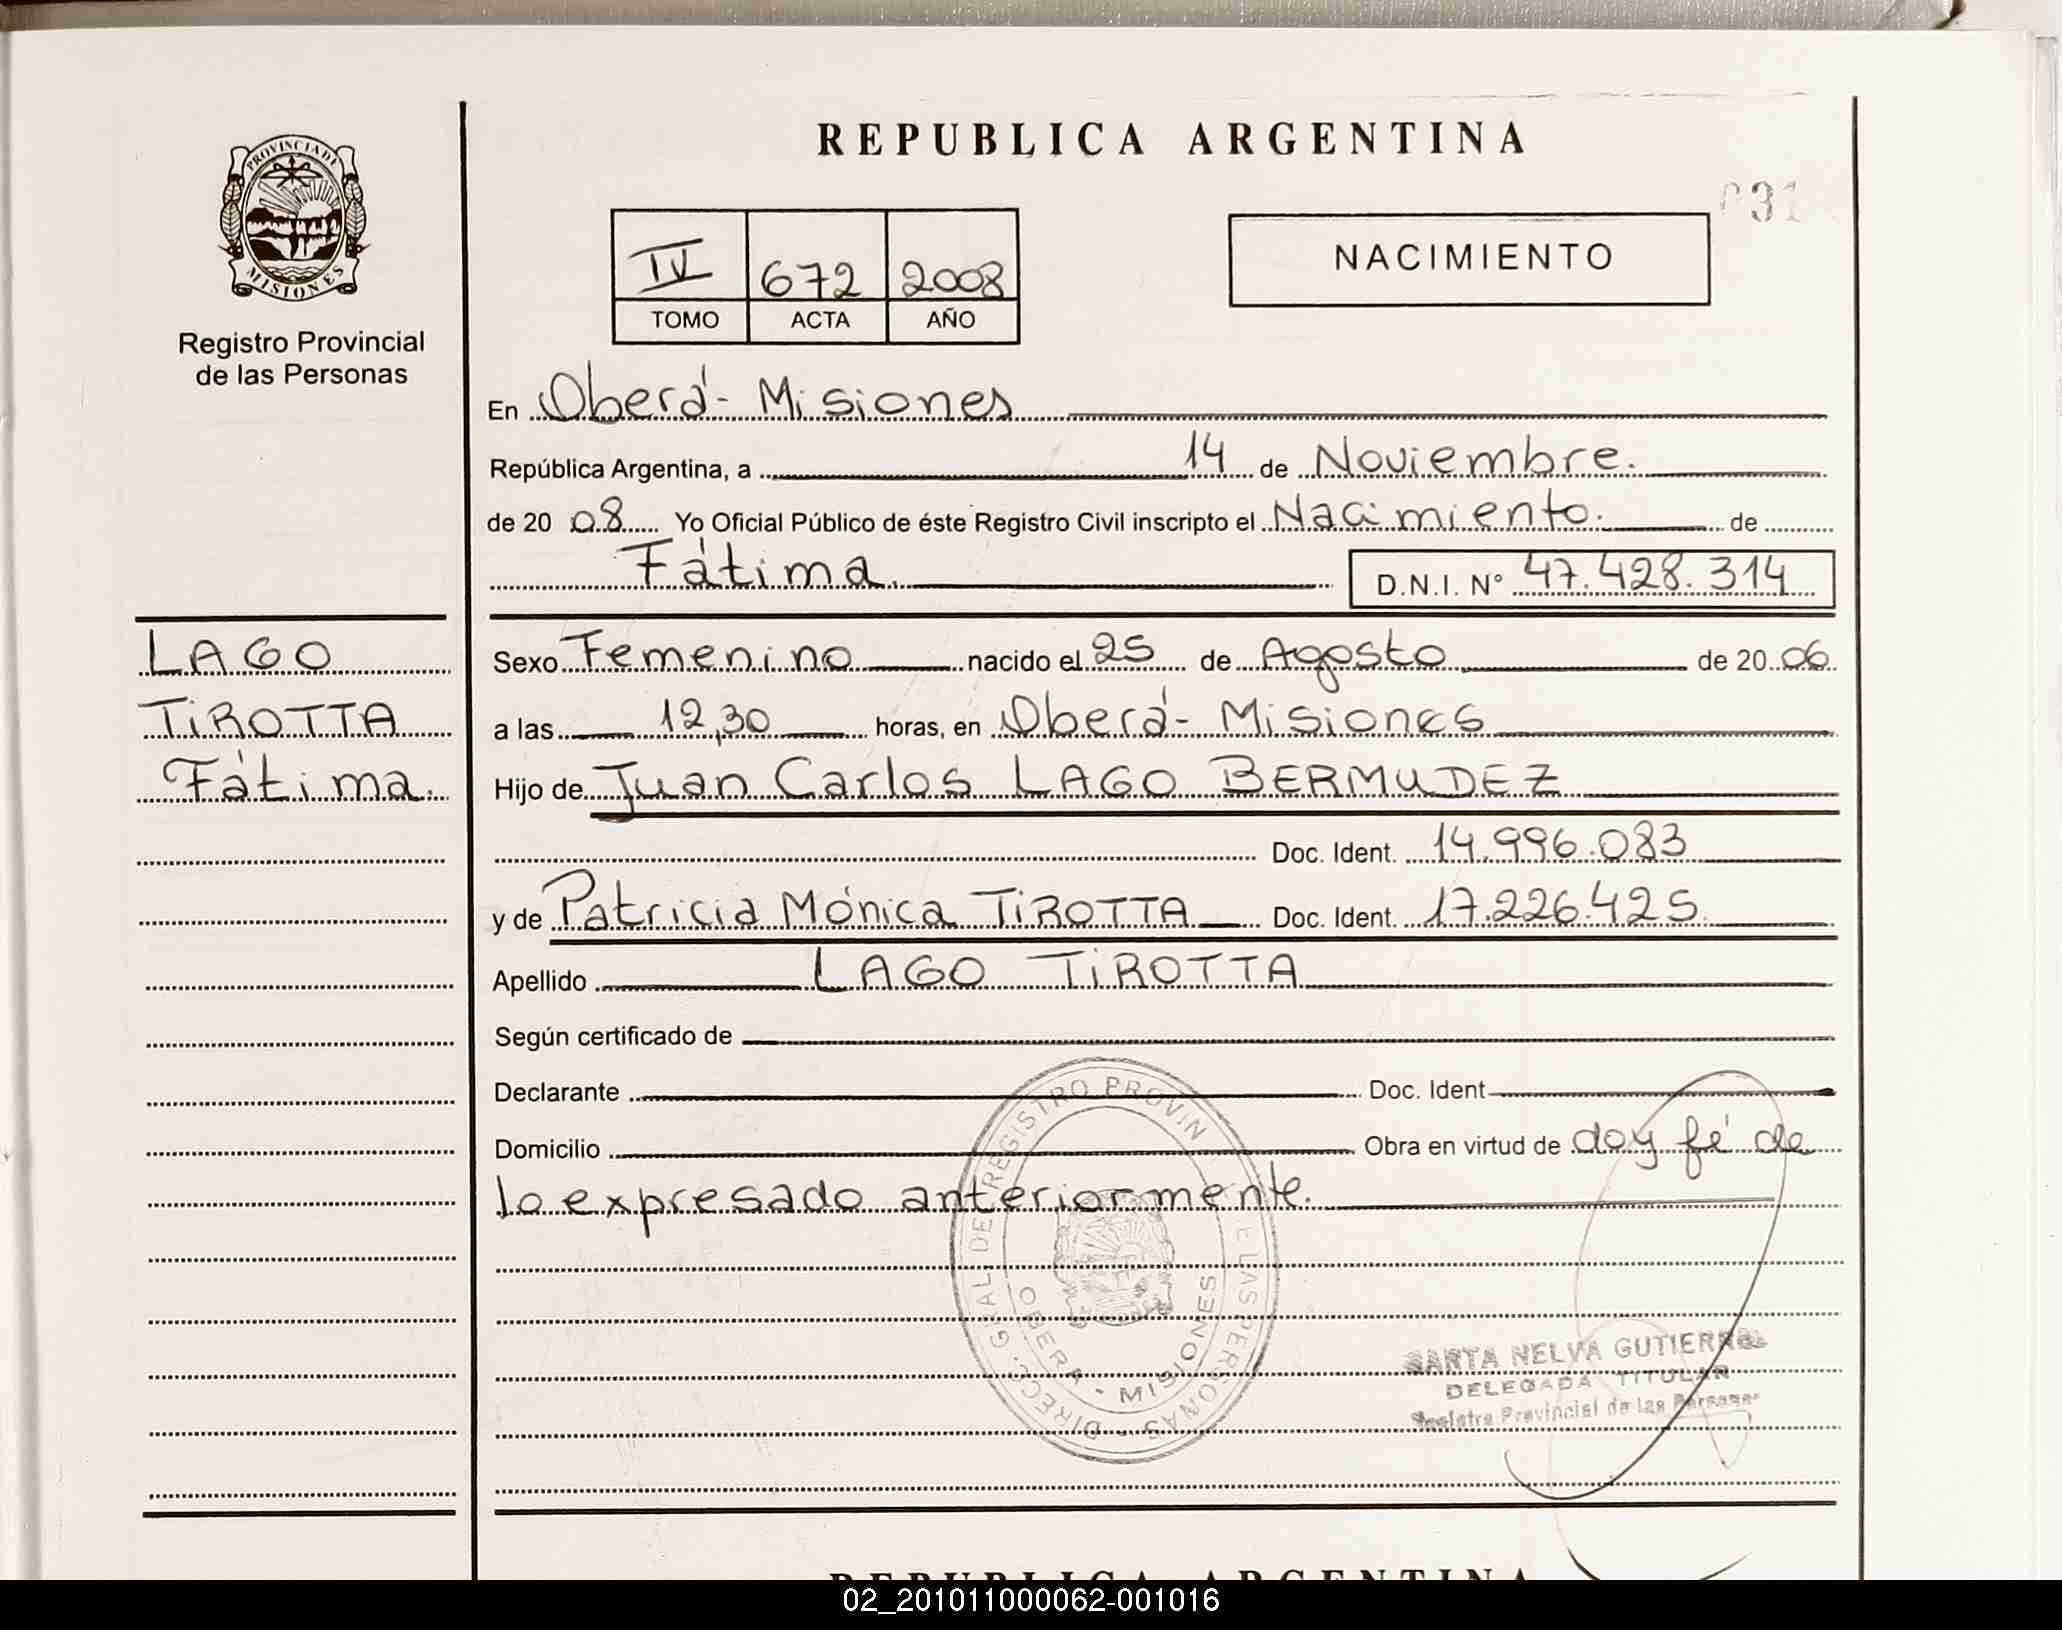 REPUBLICA ARGENTINA
031
PROVINCIA DE
MISIONES
Registro Provincial
de las Personas
IV 672 2008
TOMO ACTA AÑO
NACIMIENTO
En Oberá - Misiones
República Argentina, a 14 de Noviembre.
de 20 08 Yo Oficial Público de éste Registro Civil inscripto el Nacimiento. de
Fátima. D.N.I. N° 47.428.314
LAGO
TiROTTA
Fátima.
Sexo Femenino nacido el 25 de Agosto de 20 06
a las 12,30 horas, en Oberá - Misiones
Hijo de Juan Carlos LAGO BERMUDEZ
Doc. Ident. 14.996.083
y de Patricia Mónica TiROTTA Doc. Ident. 17.226.425
Apellido LAGO TiROTTA
Según certificado de
Declarante Doc. Ident
Domicilio Obra en virtud de doy fé de
lo expresado anteriormente.
DIRECC. GRAL. DEL REGISTRO PROVIN DE LAS PERSONAS
OBERA - MISIONES
NELVA GUTIERREZ
DELEGADA TITULAR
Registro Provincial de las Personas
REPUBLICA ARGENTINA
02_201011000062-001016